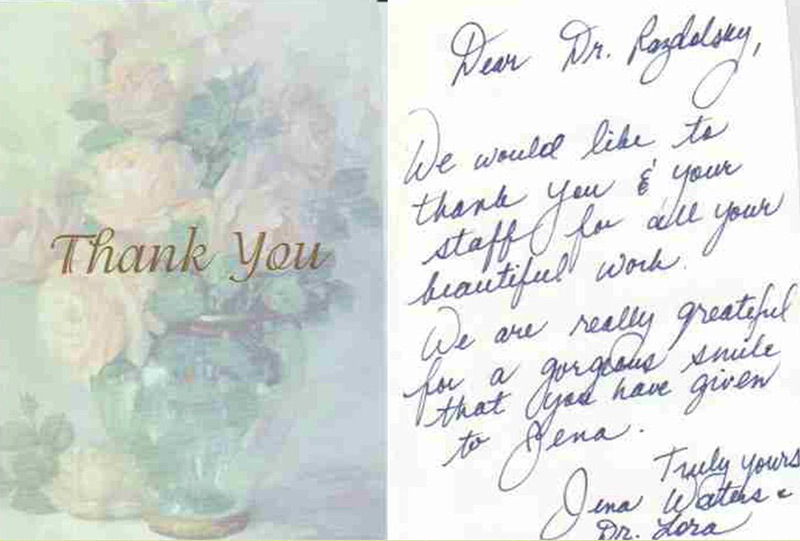 Thank You
Dear Dr. Razdolsky,
We would like to
thank you & your
staff for all your
beautiful work.
We are really greateful
for a gorgeous smile
that you have given
to Jena.
Truly yours
Jena Waters &
Dr. Lora